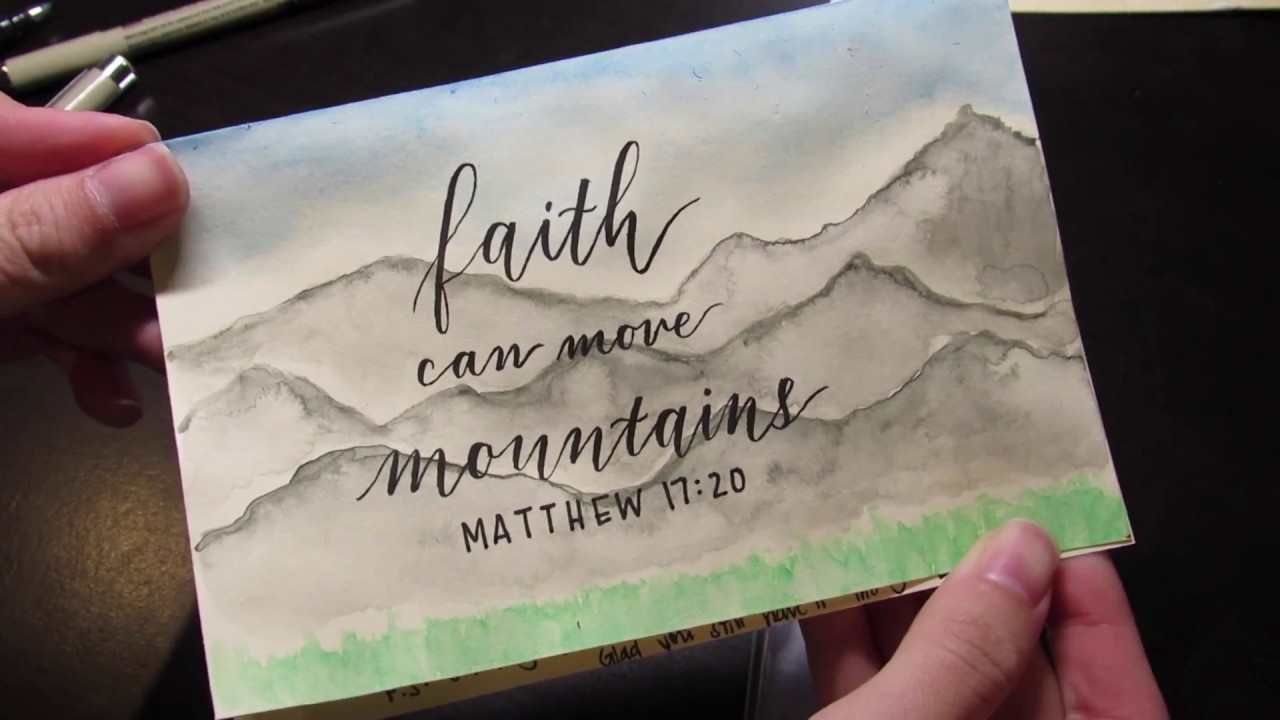 faith
can move
mountains
MATTHEW 17:20
P.S.
Glad you still have it